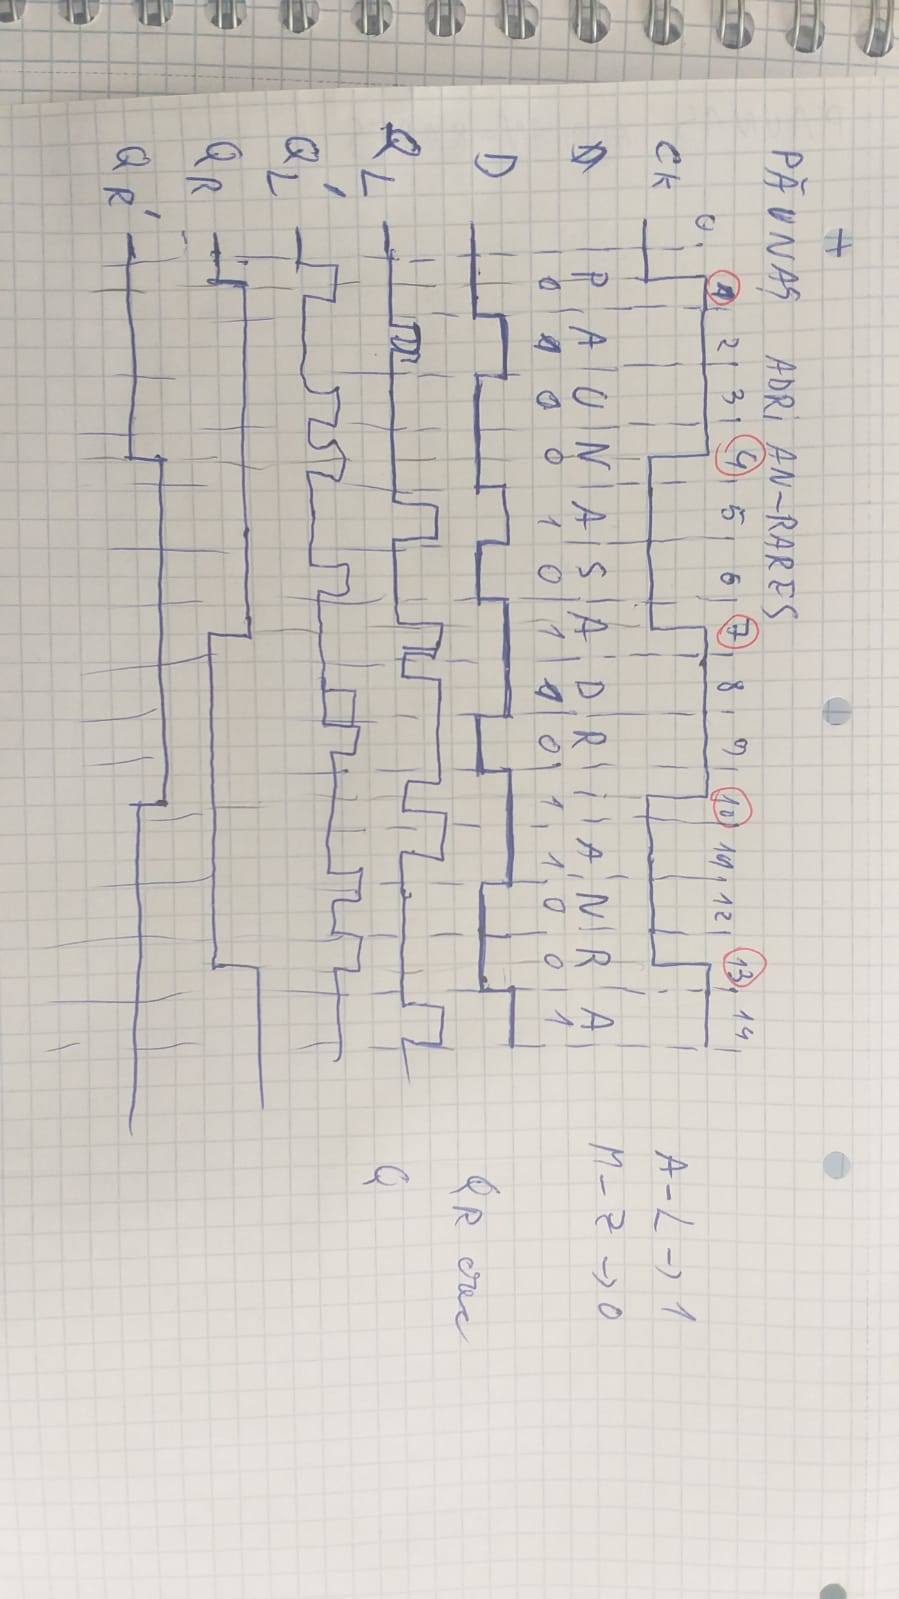 PĂUNAȘ ADRiAN-RARES
0 1 2 3 4 5 6 7 8 9 10 11 12 13 14
CK
A-L → 1
P A U N A S A D R i A N R A
M-Z → 0
0 1 0 0 1 0 1 1 0 1 1 0 0 1
D
QR
Q L
Q
Q L'
Q R
Q R'